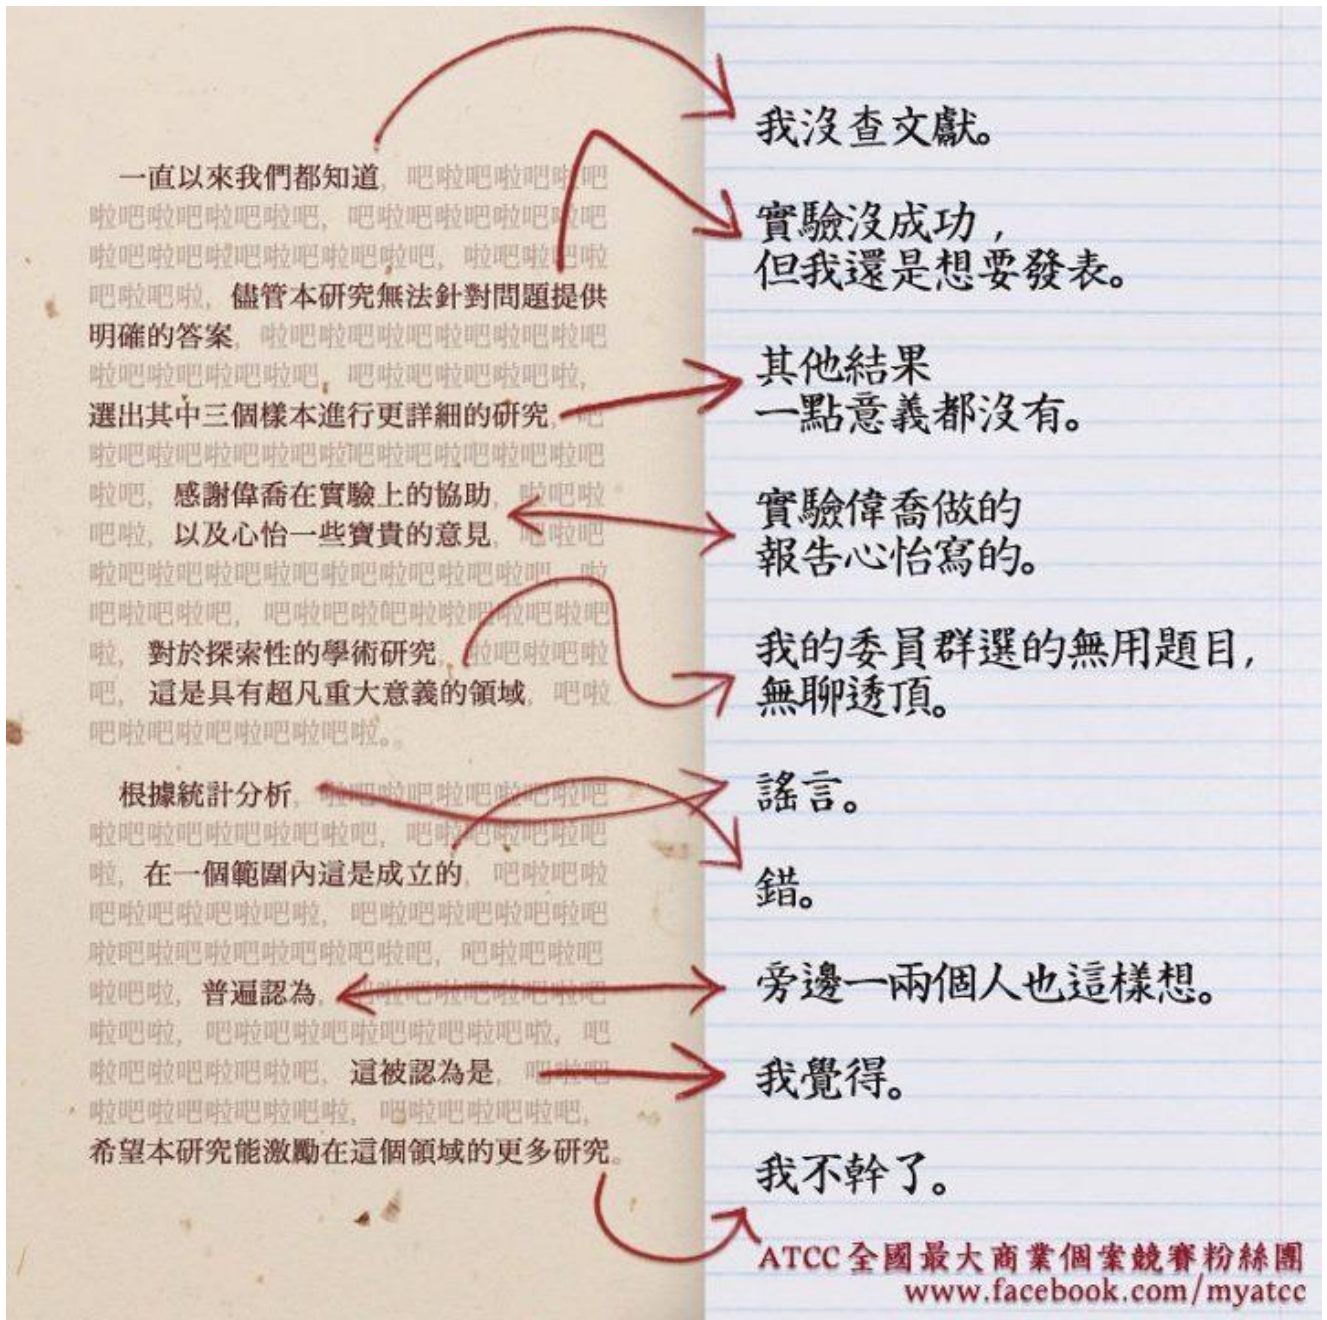 一直以來我們都知道, 吧啦吧啦吧啦吧
啦吧啦吧啦吧啦吧, 吧啦吧啦吧啦吧啦吧
啦吧啦吧啦吧啦吧啦吧啦吧, 啦吧啦吧啦
吧啦吧啦, 儘管本研究無法針對問題提供
明確的答案, 啦吧啦吧啦吧啦吧啦吧啦吧
啦吧啦吧啦吧啦吧吧, 吧啦吧啦吧啦吧啦,
選出其中三個樣本進行更詳細的研究, 吧
啦吧啦吧啦吧啦吧啦吧啦吧啦吧啦吧啦吧
啦吧, 感謝偉喬在實驗上的協助, 啦吧啦
吧啦, 以及心怡一些寶貴的意見, 吧啦吧
啦吧啦吧啦吧啦吧啦吧啦吧啦吧啦吧, 啦
吧啦吧啦吧, 吧啦吧啦吧啦啦吧啦吧啦吧
啦, 對於探索性的學術研究, 啦吧啦吧啦
吧, 這是具有超凡重大意義的領域, 吧啦
吧啦吧啦吧啦吧啦吧啦。。
根據統計分析, 啦吧啦吧啦吧啦吧啦吧
啦吧啦吧啦吧啦吧啦吧, 吧啦吧啦吧啦吧
啦, 在一個範圍內這是成立的, 吧啦吧啦
吧啦吧啦吧啦吧啦, 吧啦吧啦吧啦吧啦吧
啦吧啦吧啦吧啦吧啦吧啦吧, 吧啦吧啦吧
啦吧啦, 普遍認為, 吧啦吧啦吧啦吧啦吧
啦吧啦, 吧啦吧啦吧啦吧啦吧啦吧啦, 吧
啦吧啦吧啦吧啦吧, 這被認為是, 吧啦吧
啦吧啦吧啦吧啦吧啦, 吧啦吧啦吧啦吧,
希望本研究能激勵在這個領域的更多研究。
我沒查文獻。
實驗沒成功,
但我還是想要發表。
其他結果
一點意義都沒有。
實驗偉喬做的
報告心怡寫的。
我的委員群選的無用題目,
無聊透頂。
謠言。
錯。
旁邊一兩個人也這樣想。
我覺得。
我不幹了。
ATCC 全國最大商業個案競賽粉絲團
www.facebook.com/myatcc